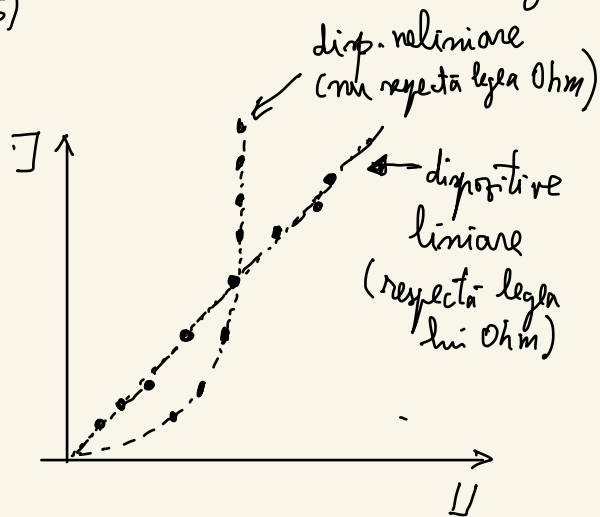 5)
disp. neliniare
(nu respectă legea Ohm)
I
dispozitive
liniare
(respectă legea
lui Ohm)
U